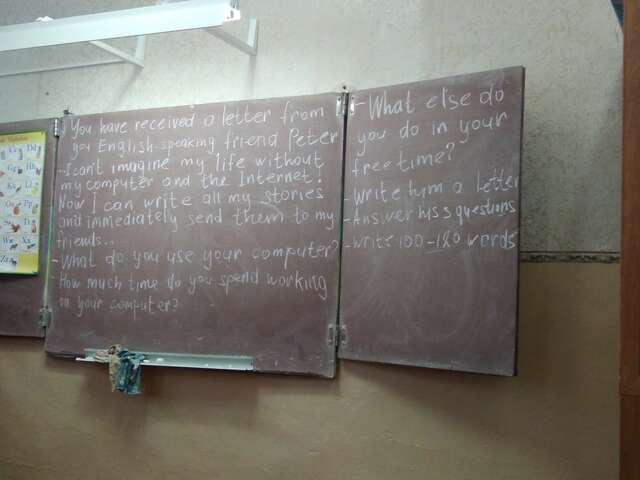 You have received a letter from
you English-speaking friend Peter
-I can't imagine my life without
my computer and the Internet!
Now I can write all my stories
and immediately send them to my
friends..
-What do you use your computer?
How much time do you spend working
on your computer?
-What else do
you do in your
free time?
-Write him a letter
-Answer his 3 questions
-Write 100-120 words
Dd
Pp
Xx